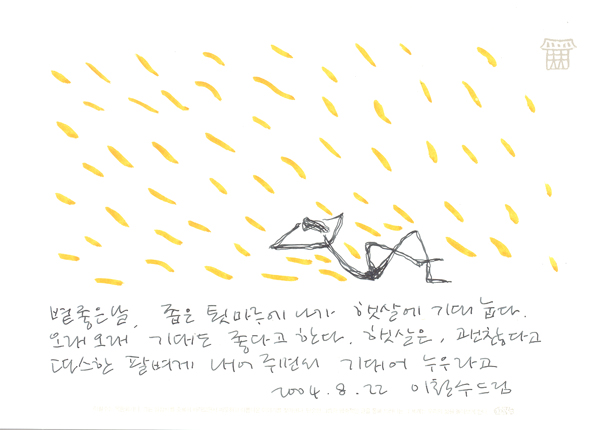 볕좋은날, 좁은 툇마루에 나가 햇살에 기대 눕다.
오래오래 기대도 좋다고 한다. 햇살은, 괜찮다고
따스한 팔베개 내어 주면서 기대어 누우라고
2004. 8. 22 이철수드림